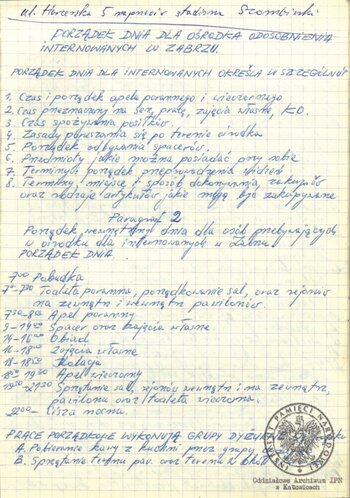 ul. Harcerska 5 naprzeciw stadionu Szombierki
PORZĄDEK DNIA DLA OŚRODKA ODOSOBNIENIA
INTERNOWANYCH W ZABRZU.
PORZĄDEK DNIA DLA INTERNOWANYCH OKREŚLA W SZCZEGÓLNOŚ
1. Czas i porządek apelu porannego i wieczornego
2. Czas przeznaczony na sen, pracę, zajęcia własne, KO.
3. Czas spożywania posiłków.
4. Zasady poruszania się po terenie ośrodka
5. Porządek odbywania spacerów.
6. Przedmioty jakie można posiadać przy sobie
7. Terminy i porządek przeprowadzenia widzeń
8. Terminy, miejsce i sposób dokonywania zakupów
oraz rodzaje artykułów jakie mogą być zakupywane
Paragraf 2
Porządek wewnętrzny dnia dla osób przebywających
w ośrodku dla internowanych w Zabrzu
PORZĄDEK DNIA.
7⁰⁰ Pobudka
Toaleta poranna, porządkowanie sal, oraz rejonów
na zewnątrz i wewnątrz pawilonów.
Apel poranny
Spacer oraz zajęcia własne
Obiad
Zajęcia własne
Kolacja
Apel wieczorny
Sprzątanie sal, rejonów wewnątrz i na zewnątrz,
pawilonu oraz toaleta wieczorna.
22⁰⁰ Cisza nocna.
PRACE PORZĄDKOWE WYKONUJĄ GRUPY
A. Pobieranie kawy z kuchni przez grupę
B. Sprzątanie terenu paw. oraz terenu
INSTYTUT PAMIĘCI NARODOWEJ
Oddziałowe Archiwum IPN
w Katowicach